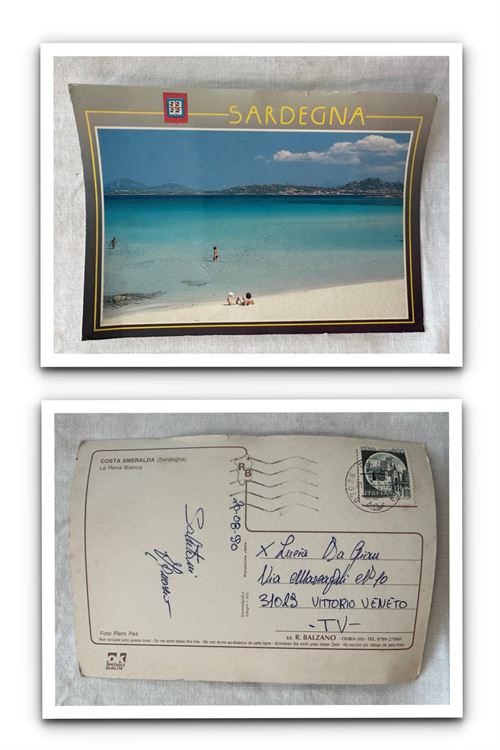 SARDEGNA
COSTA SMERALDA (Sardegna)
La Rena Bianca
RB
ITALIA
20-08-90
Saluti
X Lucia Da
Via
31029 VITTORIO VENETO
-TV-
Foto Piero Pes
Ed. R. BALZANO - OLBIA (SS) - TEL. 0789-27000
Non scrivere sotto questa linea - Do not write below this line - Ne rien écrire au-dessous de cette ligne - Schreiben Sie nicht unter diese Zeile - No escribir por debajo de esta linea
OK
SPECIALE
QUALITÀ